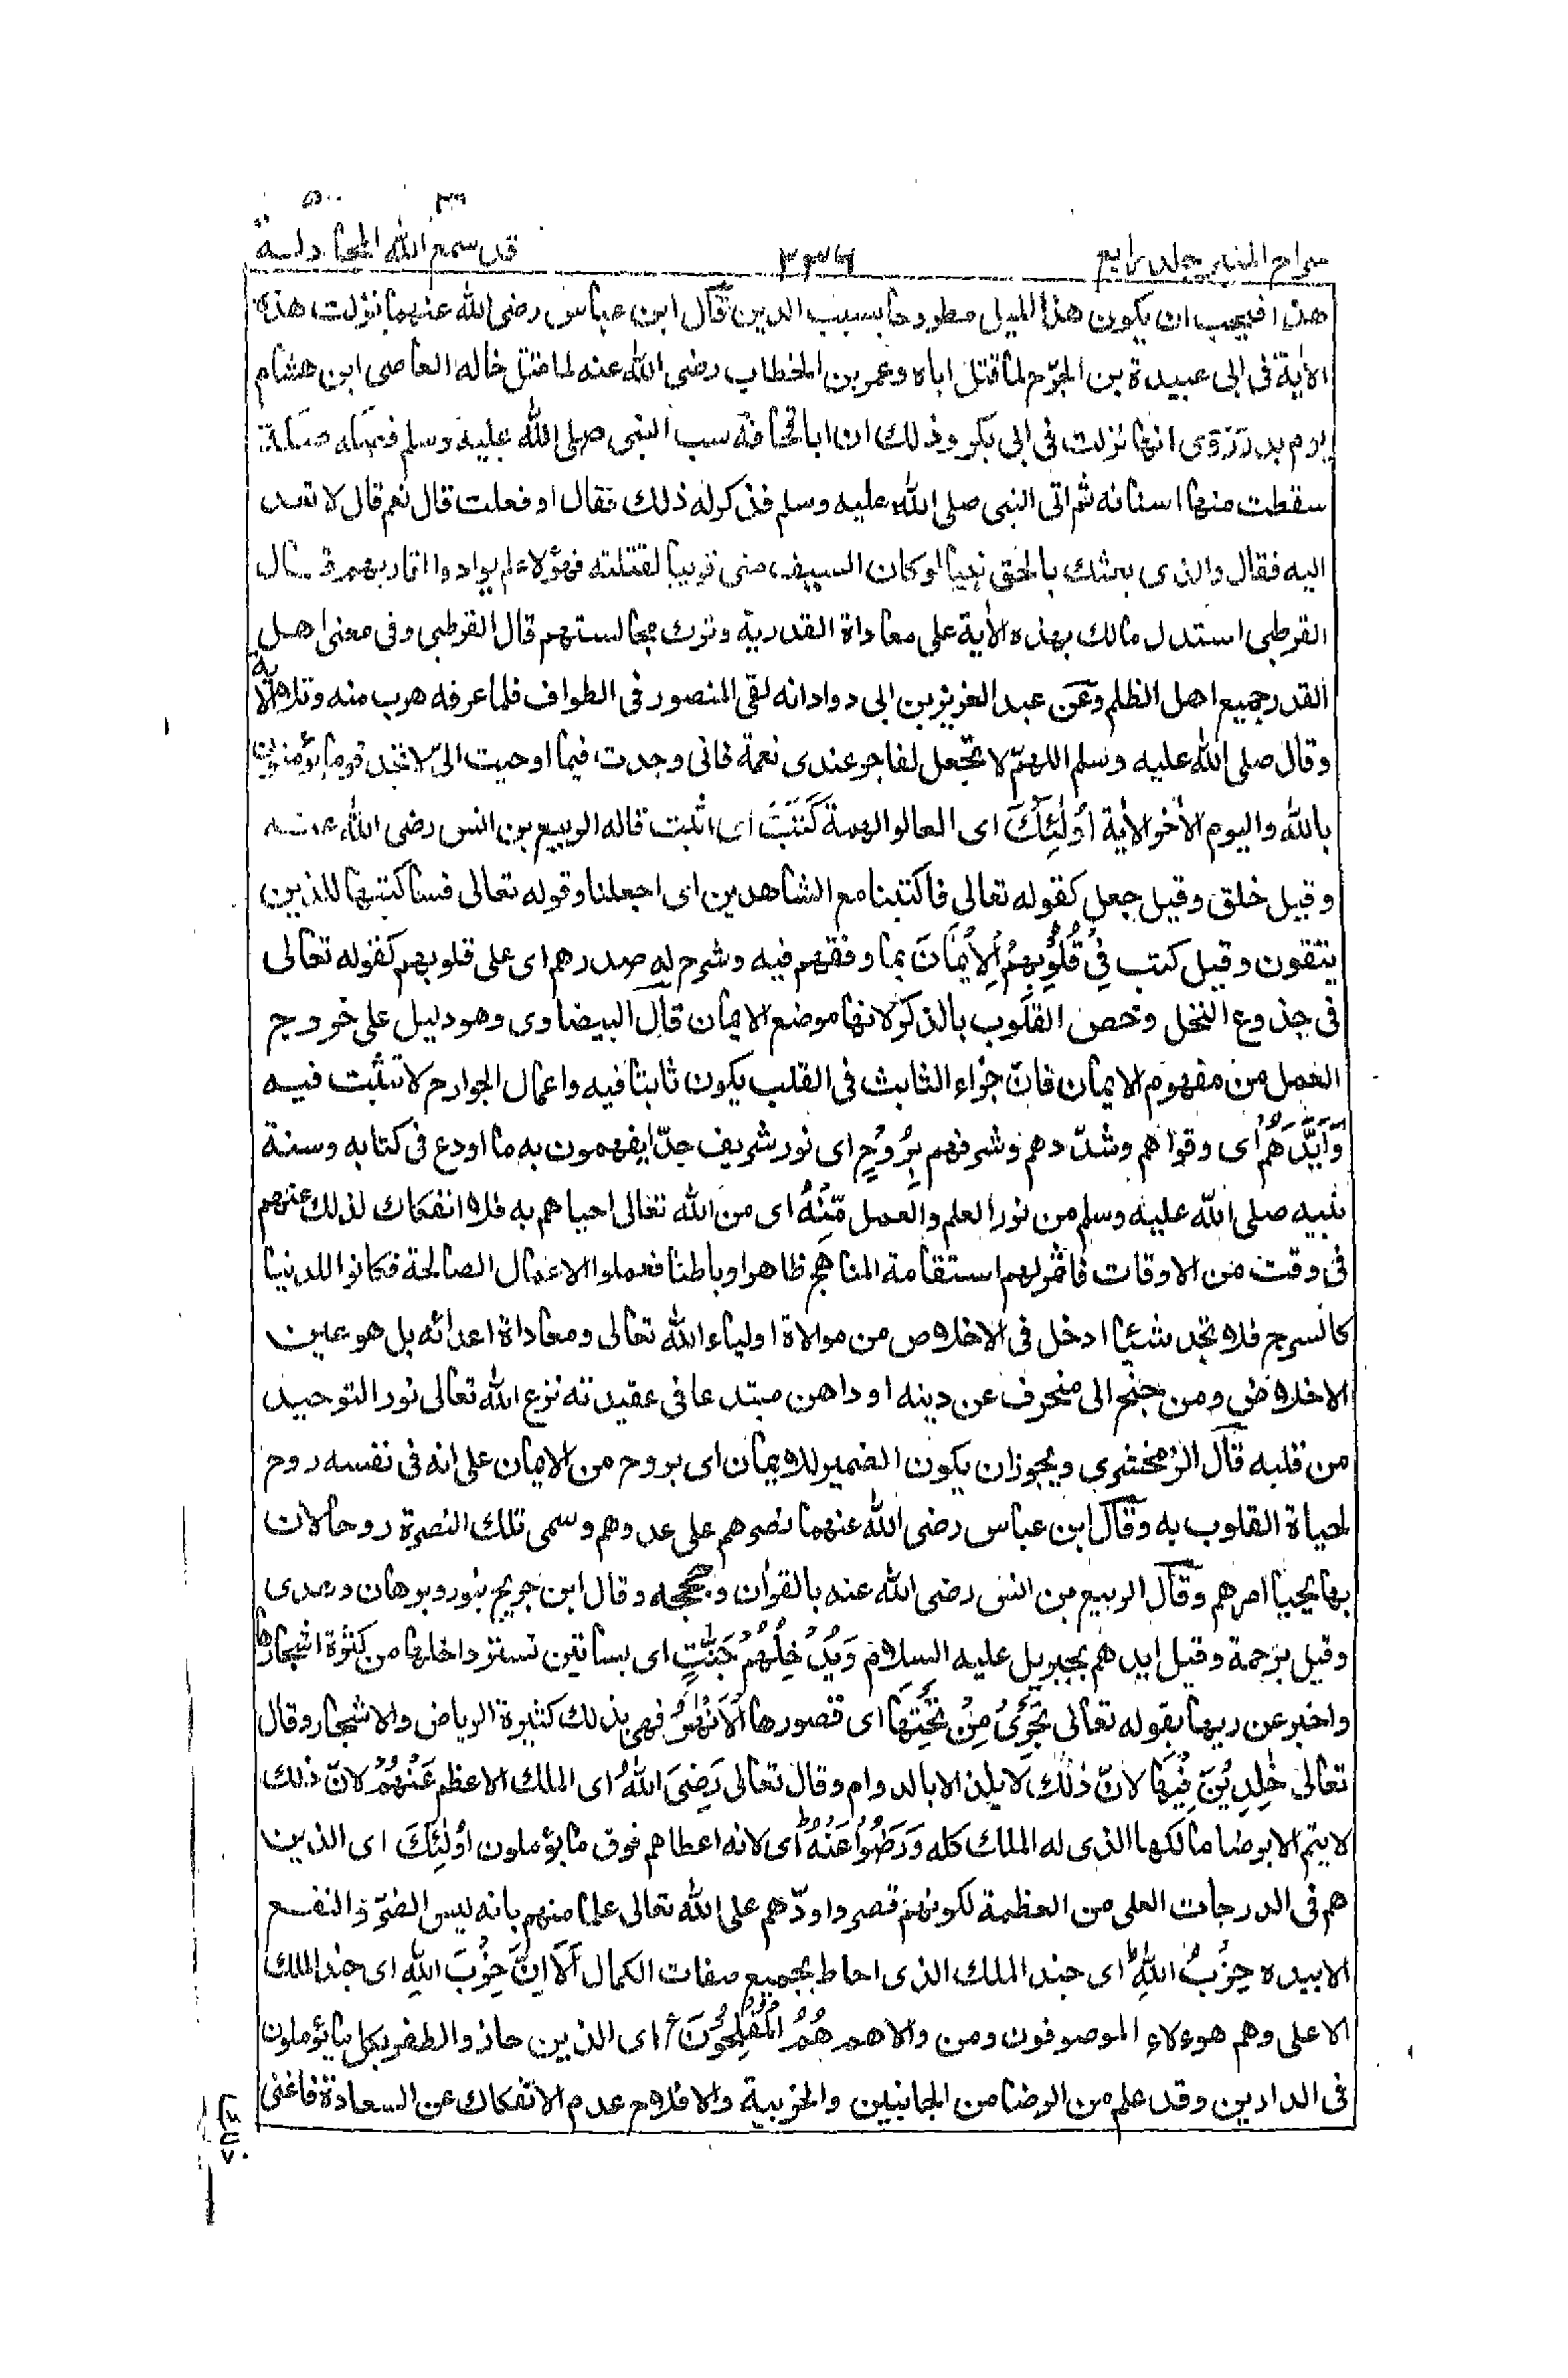 سراج المنير جلد رابع ٢٣٦ قد سمع الله المجادلة
هذا فيجب ان يكون هذا الميل مطروحا بسبب الدين قال ابن عباس رضى الله عنهما نزلت هذه
الاٰية فى ابى عبيدة بن الجرّح لما قتل اباه وعمر بن الخطاب رضى الله عنه لما قتل خاله العاصى ابن هشام
يوم بدر وروى انها نزلت فى ابى بكر وذلك ان ابا قحافة سب النبى صلى الله عليه وسلم فصكه صكة
سقطت منها اسنانه ثم اتى النبى صلى الله عليه وسلم فذكر له ذلك فقال او فعلت قال نعم قال لا تعد
اليه فقال والذى بعثك بالحق نبيا لو كان السيف منى قريبا لقتلته فهؤلاء لم يوادوا اقاربهم قال
القرطبى استدل مالك بهذه الاٰية على معاداة القدرية وترك مجالستهم قال القرطبى وفى معنى اهل
القدر جميع اهل الظلم وعن عبد العزيز بن ابى دواد انه لقى المنصور فى الطواف فلما عرفه هرب منه وتلا هٰذه الاٰية
وقال صلى الله عليه وسلم اللهمّ لا تجعل لفاجر عندى نعمة فانى وجدت فيما اوحيت الىّ لا تجد قوما يؤمنون
بالله واليوم الاٰخر الاٰية اُولٰئِكَ اى العالو الهمة كَتَبَ اى اثبت قاله الربيع بن انس رضى الله عنه
وقيل خلق وقيل جعل كقوله تعالى فاكتبنا مع الشاهدين اى اجعلنا وقوله تعالى فساكتبها للذين
يتقون وقيل كتب فِىْ قُلُوْبِهِمُ الْاِيْمَانَ بما وفقهم فيه وشرح له صدرهم اى على قلوبهم كقوله تعالى
فى جذوع النخل وخص القلوب بالذكر لانها موضع الايمان قال البيضاوى وهو دليل على خروج
العمل من مفهوم الايمان فانّ جزاء الثابث فى القلب يكون ثابتا فيه واعمال الجوارح لا تثبت فيه
وَاَيَّدَهُمْ اى وقواهم وشدّدهم وشرفهم بِرُوْحٍ اى نور شريف جدّا يفهمون به ما اودع فى كتابه وسنة
نبيه صلى الله عليه وسلم من نور العلم والعمل مِّنْهُ اى من الله تعالى احياهم به فلا انفكاك لذلك عنهم
فى وقت من الاوقات فاثمر لهم استقامة المناهج ظاهرا وباطنا فعملوا الاعمال الصالحة فكانوا للدنيا
كالسرج فلا تجد شيئا ادخل فى الاخلاص من موالاة اولياء الله تعالى ومعاداة اعدائه بل هو عين
الاخلاص ومن جنح الى منحرف عن دينه او داهن مبتدعا فى عقيدته نزع الله تعالى نور التوحيد
من قلبه قال الزمخشرى ويجوز ان يكون الضمير للايمان اى بروح من الايمان على انه فى نفسه روح
لحياة القلوب به وقال ابن عباس رضى الله عنهما نصرهم على عدوهم وسمى تلك النصرة روحا لان
بها يحيا امرهم وقال الربيع بن انس رضى الله عنه بالقراٰن وحججه وقال ابن جريج بنور وبرهان وهدى
وقيل برحمة وقيل ايدهم بجبريل عليه السلام وَيُدْخِلُهُمْ جَنّٰتٍ اى بساتين تستر داخلها من كثرة اشجارها
واخبر عن ريها بقوله تعالى تَجْرِىْ مِنْ تَحْتِهَا اى قصورها الْاَنْهٰرُ فهى بذلك كثيرة الرياض والاشجار وقال
تعالى خٰلِدِيْنَ فِيْهَا لانّ ذلك لا يلذ الا بالدوام وقال تعالى رَضِىَ اللهُ اى الملك الاعظم عَنْهُمْ لانّ ذلك
لا يتم الا برضا مالكها الذى له الملك كله وَرَضُوْا عَنْهُ ط اى لانه اعطاهم فوق ما يؤملون اُولٰئِكَ اى الذين
هم فى الدرجات العلى من العظمة لكونهم قصروا ودّهم على الله تعالى علما منهم بانه ليس الضرّ والنفع
الا بيده حِزْبُ اللهِ ط اى جند الملك الذى احاط بجميع صفات الكمال اَلَا اِنَّ حِزْبَ اللهِ اى جند الملك
الاعلى وهم هوءلاء الموصوفون ومن والاهم هُمُ الْمُفْلِحُوْنَ اى الذين حازوا الظفر بكل ما يؤملون
فى الدارين وقد علم من الرضا من الجانبين والحزبية والافلاح عدم الانفكاك عن السعادة فاغنى